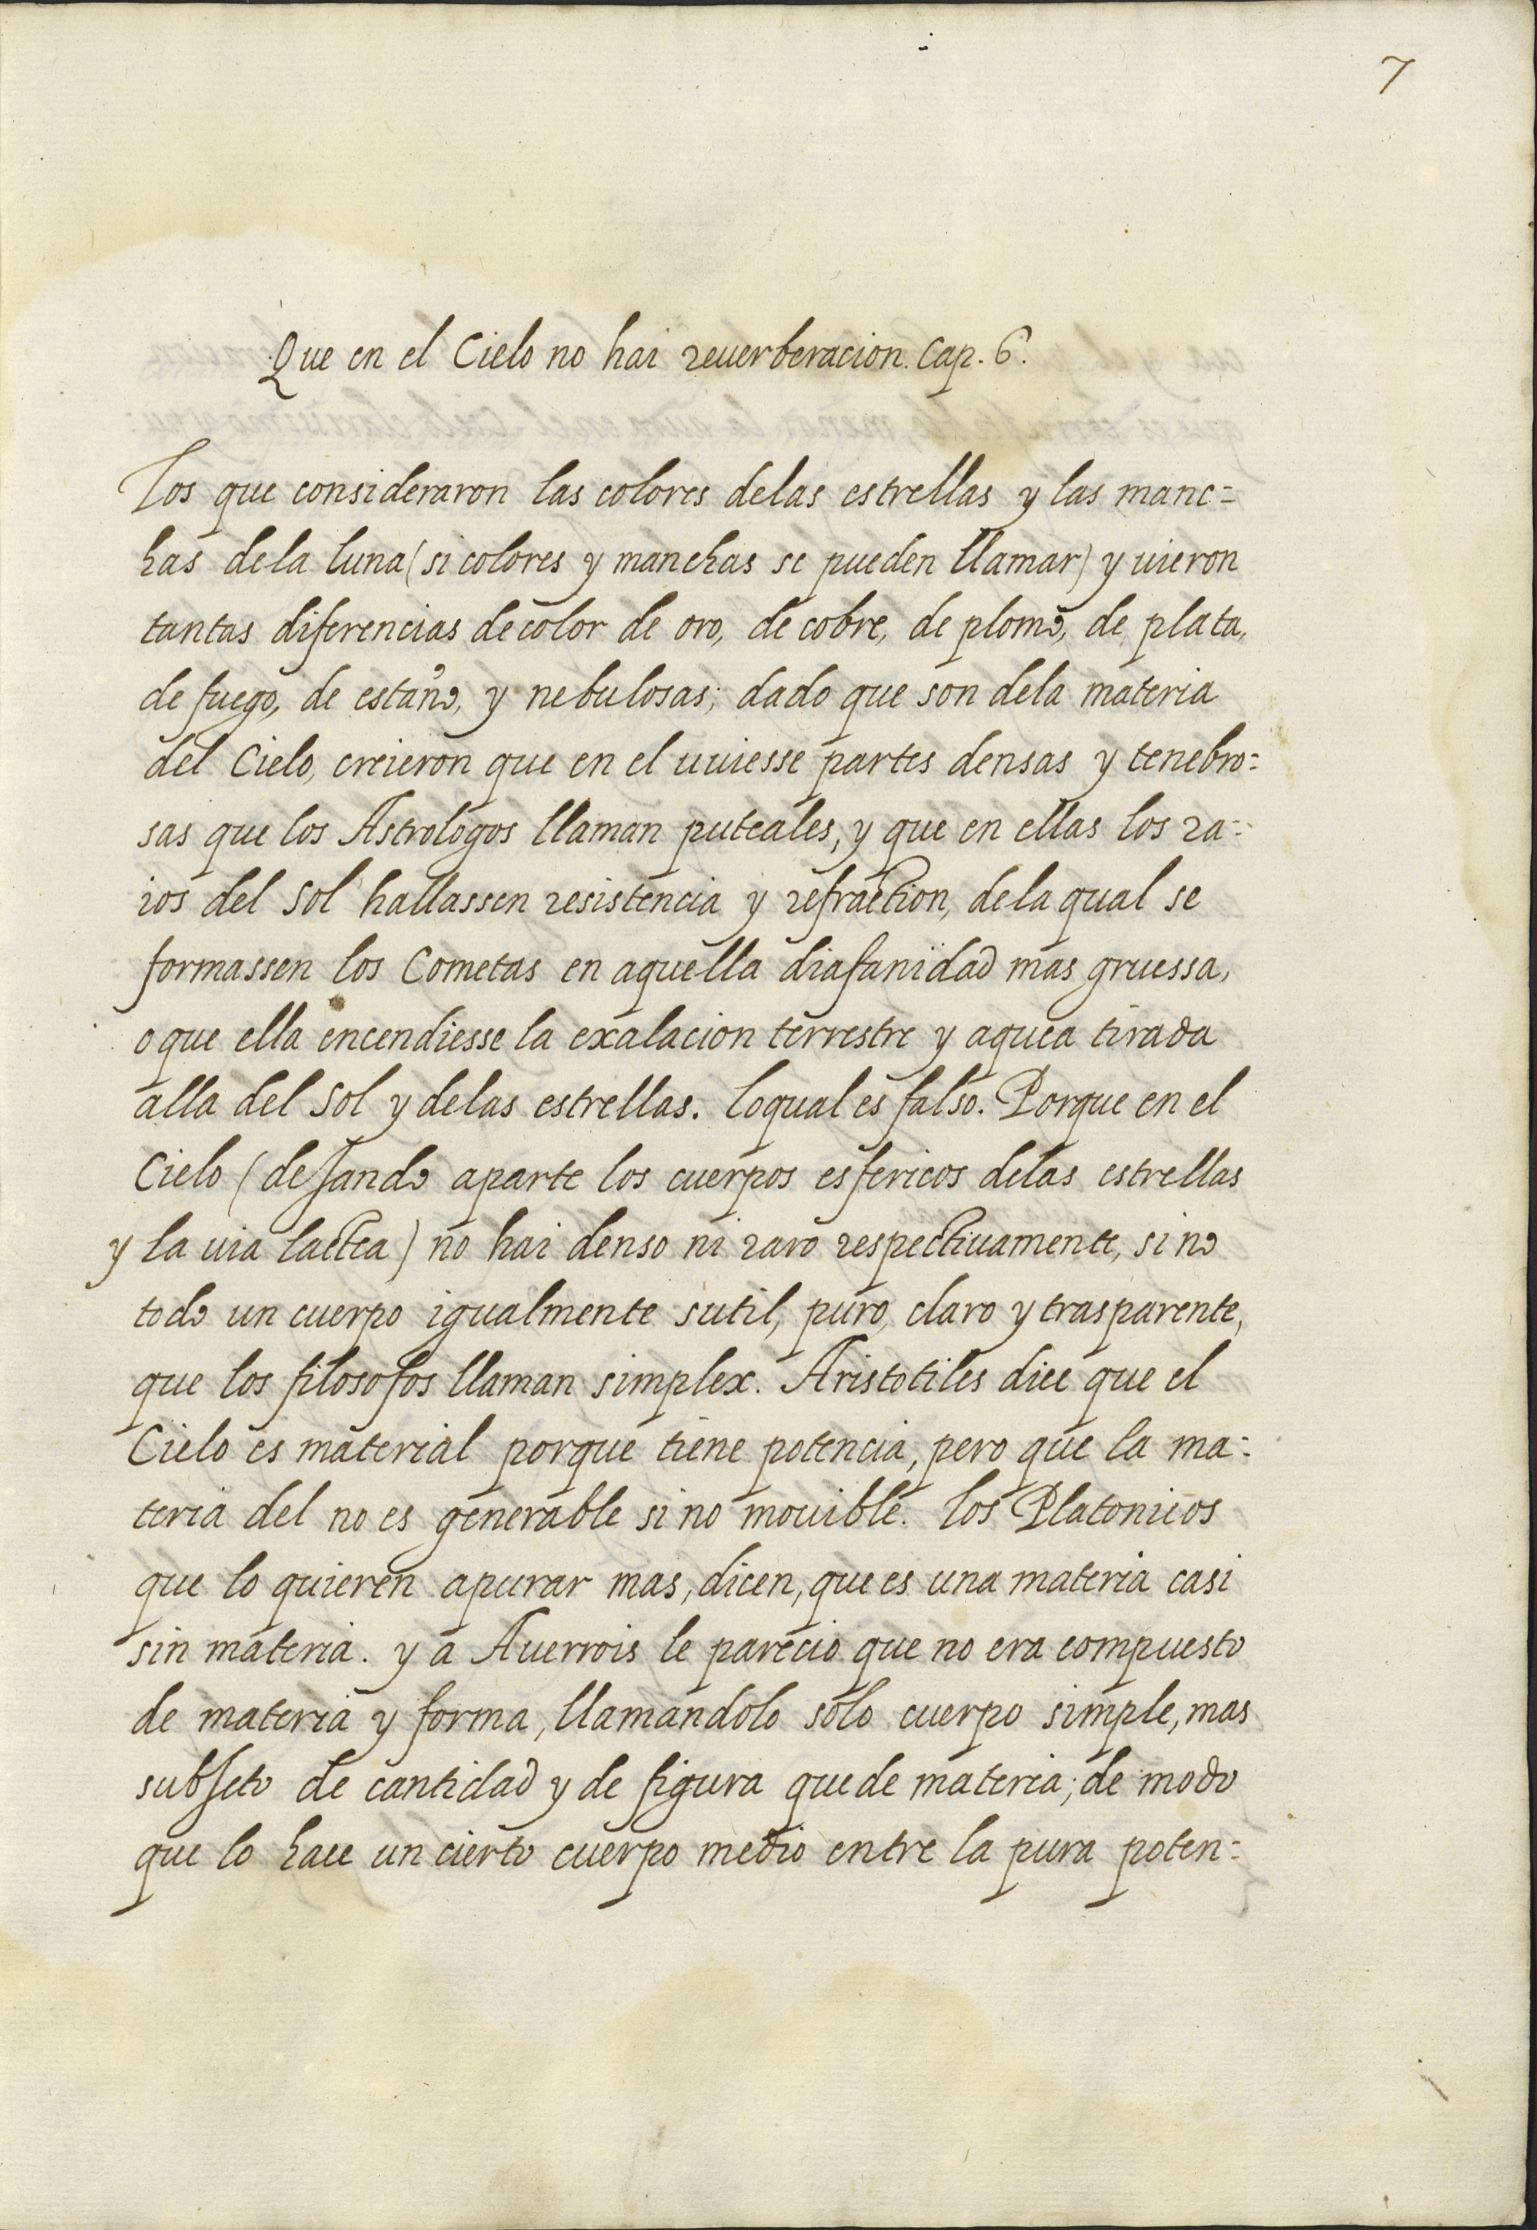 7
Que en el Cielo no hai reuerberacion. Cap. 6.
Los que consideraron las colores delas estrellas y las manc=
has dela luna (si colores y manchas se pueden llamar) y uieron
tantas diferencias de color de oro, de cobre, de plomo, de plata,
de fuego, de estaño, y nebulosas; dado que son dela materia
del Cielo, creieron que en el uuiesse partes densas y tenebro=
sas que los Astrologos llaman puteales, y que en ellas los ra=
ios del Sol hallassen resistencia y refraction, dela qual se
formassen los Cometas en aquella diafanidad mas gruessa,
o que ella encendiesse la exalacion terrestre y aquea tirada
alla del Sol y delas estrellas. loqual es falso. Porque en el
Cielo (dejando aparte los cuerpos esfericos delas estrellas
y la uia lactea) no hai denso ni raro respectiuamente, sino
todo un cuerpo igualmente sutil, puro, claro y trasparente,
que los filosofos llaman simplex. Aristotiles dice que el
Cielo es material porque tiene potencia, pero que la ma=
teria del no es generable sino mouible. los Platonicos
que lo quieren apurar mas, dicen, que es una materia casi
sin materia. y a Auerrois le parecio que no era compuesto
de materia y forma, llamandolo solo cuerpo simple, mas
subjeto de cantidad y de figura que de materia; de modo
que lo hace un cierto cuerpo medio entre la pura poten=